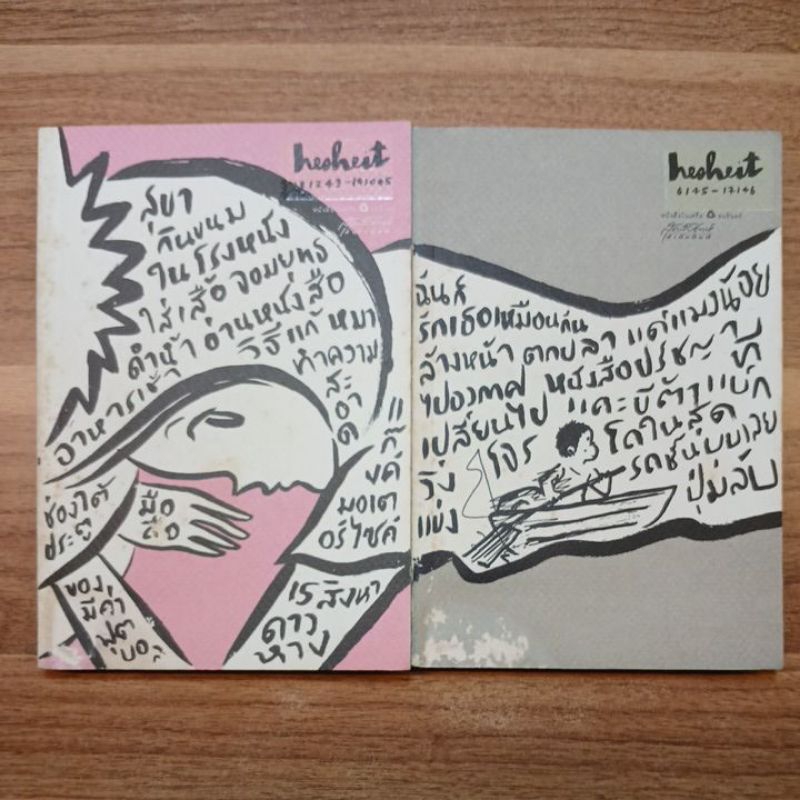 hesheit
181243-191045
สุขา
กินขนม
ในโรงหนัง
ใส่เสื้อจอมยุทธ
ดำน้ำ อ่านหนังสือ
วิธีแก้ หมา
อาหารเช้า
ทำความ
สะ
อาด
ช่องใต้
ประตู
มือ
ถือ
แ
ก๊
งค์
มอเต
อร์ไซค์
ของ
มีค่า
ฟุต
บอล
เรสิงหา
ดาว
หาง
hesheit
6145-17146
ฉันก็
รักเธอเหมือนกัน
ล้างหน้า ตากปลา แด่แมงน้อย
ไปอวกาศ หนังสือปรัชญา
เปลี่ยนไป แคะขี้ตา แบ๊ก
วิ่ง
แข่ง
โจร
โดในสุด
รถซันนี่บบเวย
ปุ่มลับ